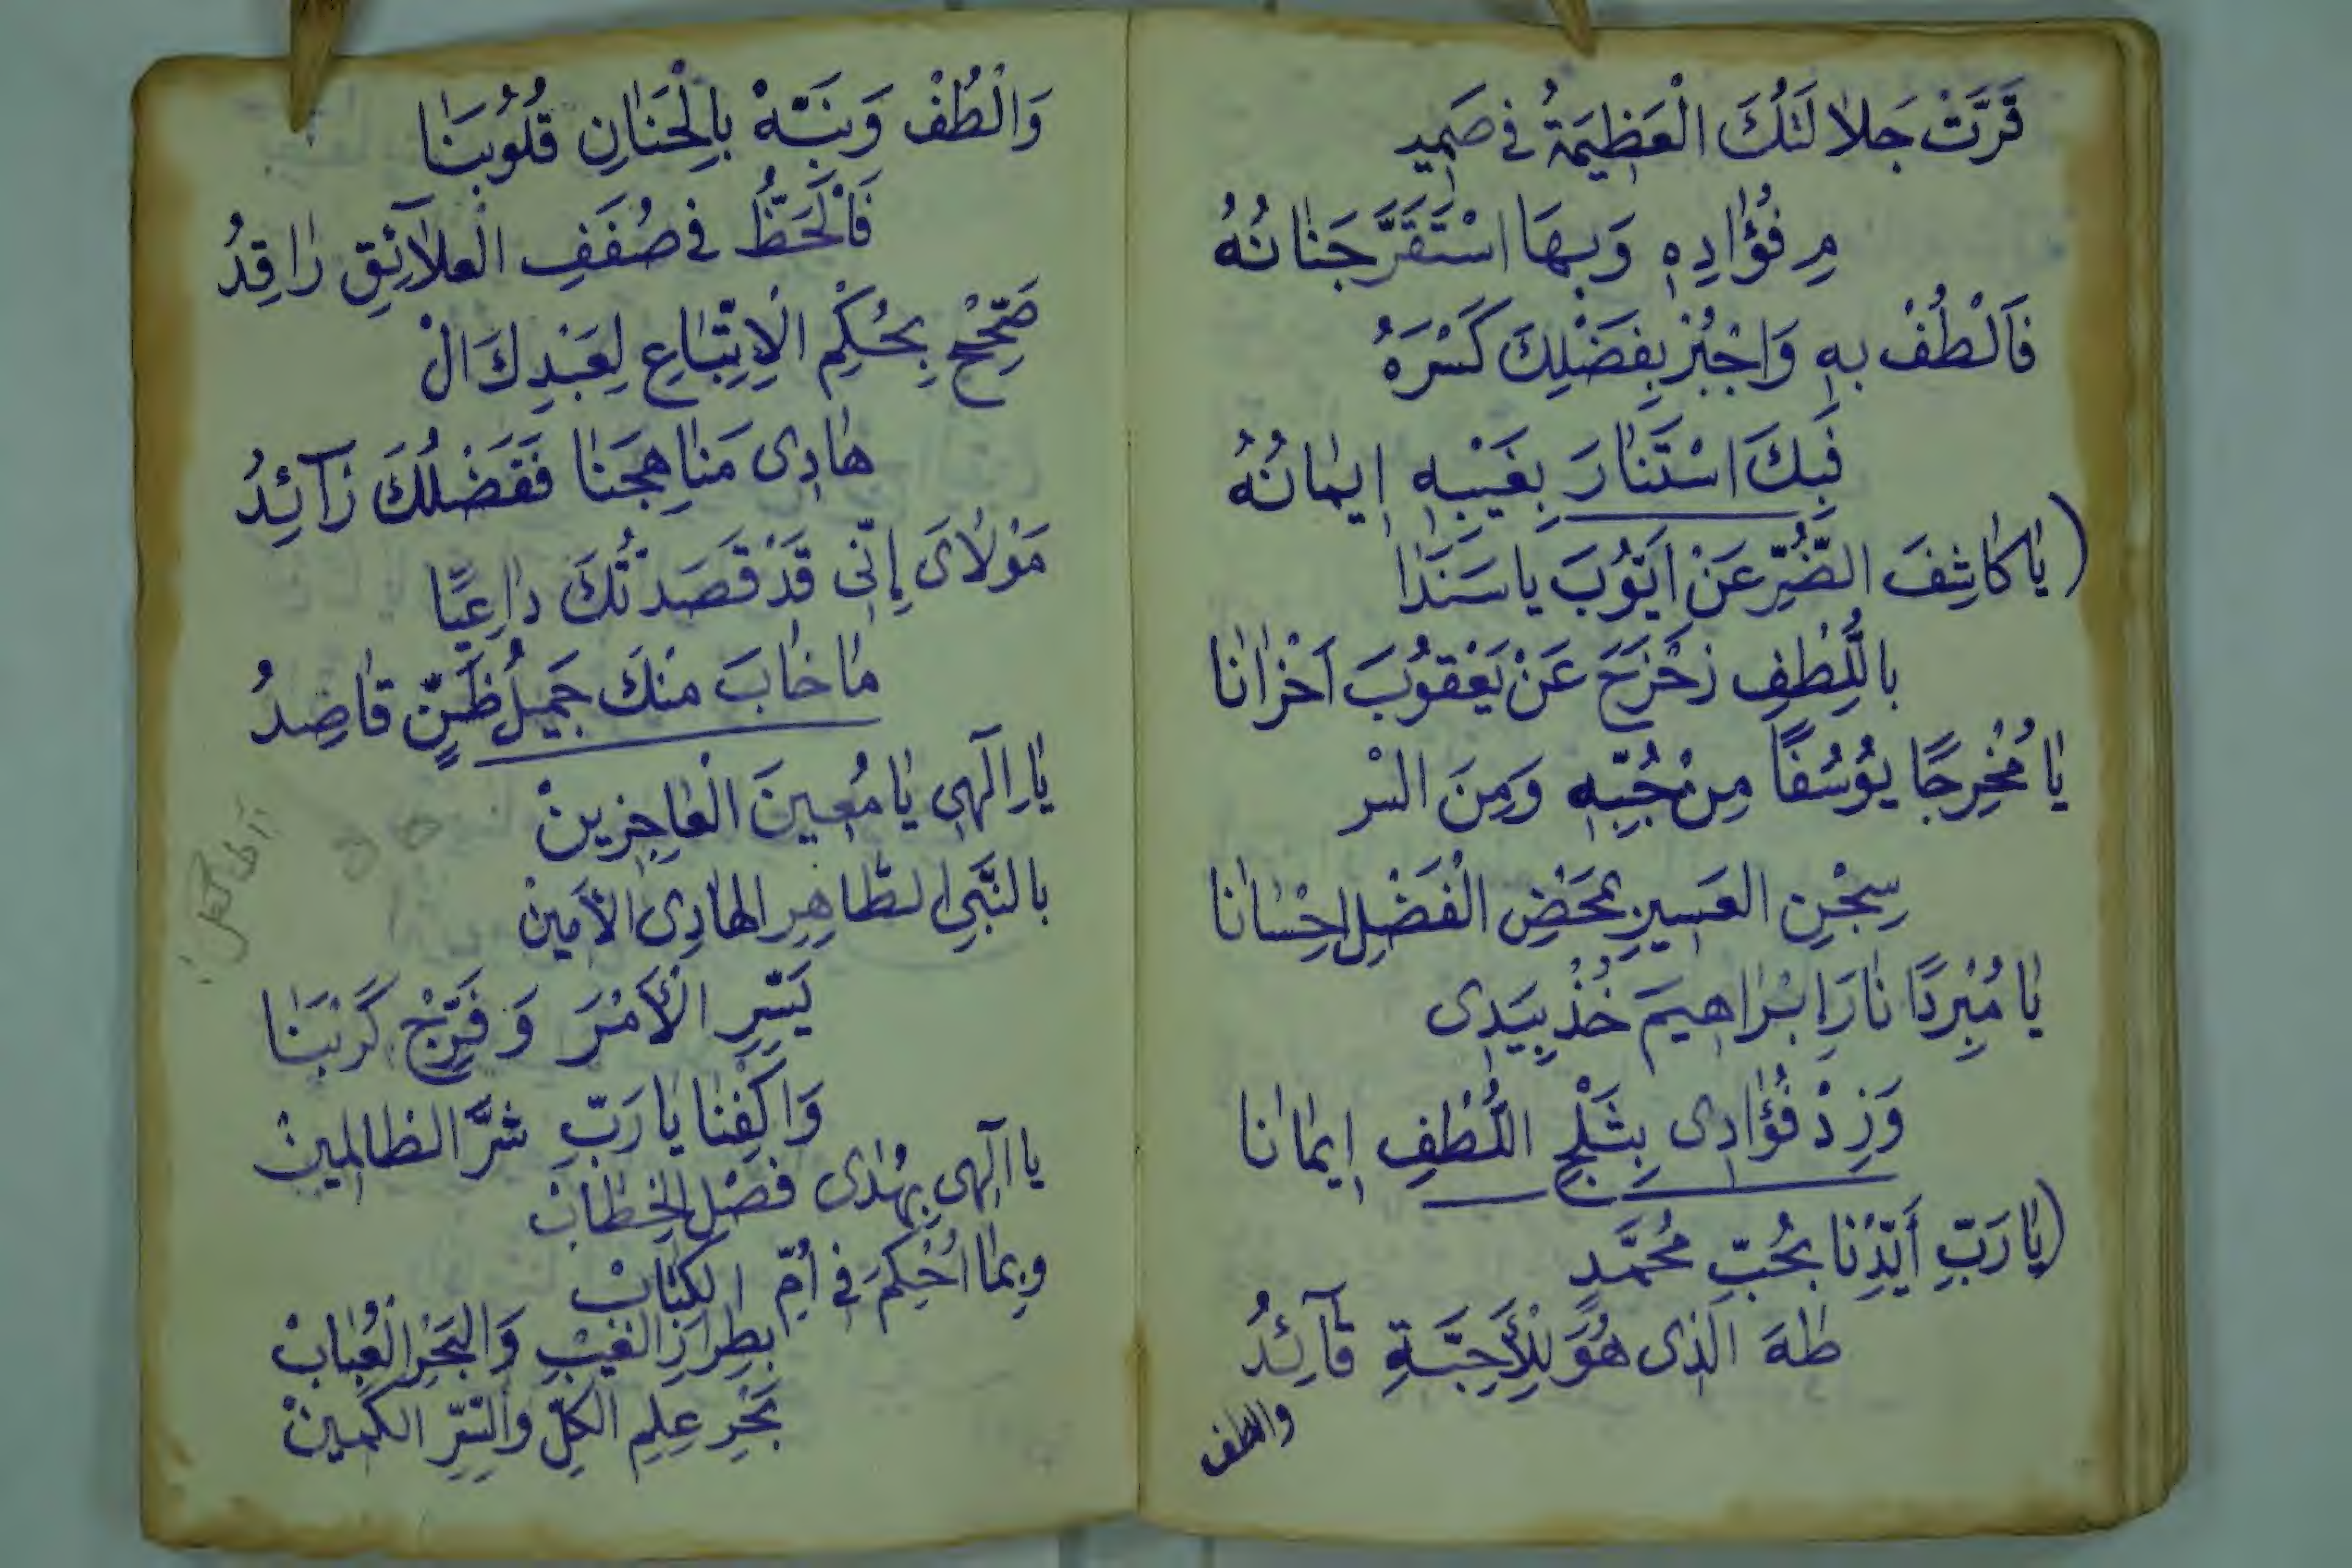 قَرَّتْ جَلَالَتُكَ الْعَظِيمَةُ فِي صَمِيـ
ـمِ فُؤَادِهِ وَبِهَا اسْتَقَرَّ جَنَانُهُ
فَالْطُفْ بِهِ وَاجْبُرْ بِفَضْلِكَ كَسْرَهُ
فَبِكَ اسْتَنَارَ بِغَيْبِهِ إِيمَانُهُ
(يَا كَاشِفَ الضُّرِّ عَنْ أَيُّوبَ يَا سَنَدَا
بِاللُّطْفِ زَحْزَحَ عَنْ يَعْقُوبَ أَحْزَانَا
يَا مُخْرِجًا يُوسُفًا مِنْ جُبِّهِ وَمِنَ السْـ
سِجْنِ الْعَسِيرِ بِمَحْضِ الْفَضْلِ إِحْسَانَا
يَا مُبْرِدًا نَارَ إِبْرَاهِيمَ خُذْ بِيَدِى
وَزِدْ فُؤَادِى بِثَلْجِ اللُّطْفِ إِيمَانَا
(يَا رَبِّ أَيِّدْنَا بِحُبِّ مُحَمَّدٍ
طٰهَ الَّذِى هُوَ لِلْأَحِبَّةِ قَآئِدُ
والطف
وَالْطُفْ وَنَبِّهْ بِالْحَنَانِ قُلُوبَنَا
فَالْحَظُّ فِي صُفَفِ الْعَلَآئِقِ رَاقِدُ
صَحِّحْ بِحُكْمِ الْاِتِّبَاعِ لِعَبْدِكَ الْ
هَادِى مَنَاهِجَنَا فَفَضْلُكَ زَآئِدُ
مَوْلَاىَ إِنِّى قَدْ قَصَدْتُكَ دَاعِيًا
مَا خَابَ مِنْكَ جَمِيلُ ظَنٍّ قَاصِدُ
يَا إِلٰهِى يَا مُعِينَ الْعَاجِزِينْ
بِالنَّبِىِ الطَّاهِرِ الْهَادِى الْأَمِينْ
يَسِّرِ الْأَمْرَ وَفَرِّجْ كَرْبَنَا
وَاكْفِنَا يَا رَبِّ شَرَّ الظَالِمِينْ
يَا إِلٰهِى بِهُدَى فَصْلِ الْخِطَابْ
وَبِمَا أُحْكِمَ فِي أُمِّ الْكِتَابْ
بِطِرَازِ الْغَيْبِ وَالْبَحْرِ الْعُبَابْ
بَحْرِ عِلْمِ الْكُلِّ وَالسِّرِّ الْكَمِينْ